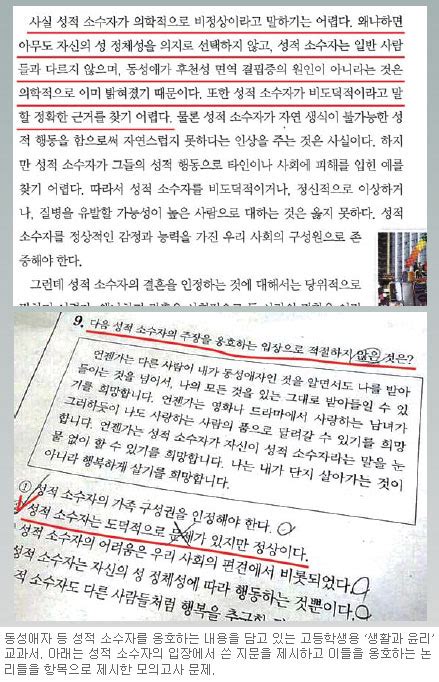 사실 성적 소수자가 의학적으로 비정상이라고 말하기는 어렵다. 왜냐하면
아무도 자신의 성 정체성을 의지로 선택하지 않고, 성적 소수자는 일반 사람
들과 다르지 않으며, 동성애가 후천성 면역 결핍증의 원인이 아니라는 것은
의학적으로 이미 밝혀졌기 때문이다. 또한 성적 소수자가 비도덕적이라고 말
할 정확한 근거를 찾기 어렵다. 물론 성적 소수자가 자연 생식이 불가능한 성
적 행동을 함으로써 자연스럽지 못하다는 인상을 주는 것은 사실이다. 하지
만 성적 소수자가 그들의 성적 행동으로 타인이나 사회에 피해를 입힌 예를
찾기 어렵다. 따라서 성적 소수자를 비도덕적이거나, 정신적으로 이상하거
나, 질병을 유발할 가능성이 높은 사람으로 대하는 것은 옳지 못하다. 성적
소수자를 정상적인 감정과 능력을 가진 우리 사회의 구성원으로 존
중해야 한다.
그런데 성적 소수자의 결혼을 인정하는 것에 대해서는 당위적으로
9. 다음 성적 소수자의 주장을 옹호하는 입장으로 적절하지 않은 것은?
언젠가는 다른 사람이 내가 동성애자인 것을 알면서도 나를 받아
들이는 것을 넘어서, 나의 모든 것을 있는 그대로 받아들일 수 있
기를 희망합니다. 언젠가는 영화나 드라마에서 사랑하는 남녀가
그러하듯이 나도 사랑하는 사람의 품으로 달려갈 수 있기를 희망
합니다. 언젠가는 성적 소수자가 자신이 성적 소수자라는 말을 눈
물 없이 할 수 있기를 희망합니다. 나는 내가 단지 살아가는 것이
아니라 행복하게 살기를 희망합니다.
① 성적 소수자의 가족 구성권을 인정해야 한다.
성적 소수자는 도덕적으로 문제가 있지만 정상이다.
성적 소수자의 어려움은 우리 사회의 편견에서 비롯되었다.
성적 소수자는 자신의 성 정체성에 따라 행동하는 것뿐이다.
적 소수자도 다른 사람들처럼 행복을 추구할
동성애자 등 성적 소수자를 옹호하는 내용을 담고 있는 고등학생용 ‘생활과 윤리’
교과서. 아래는 성적 소수자의 입장에서 쓴 지문을 제시하고 이들을 옹호하는 논
리들을 항목으로 제시한 모의고사 문제.